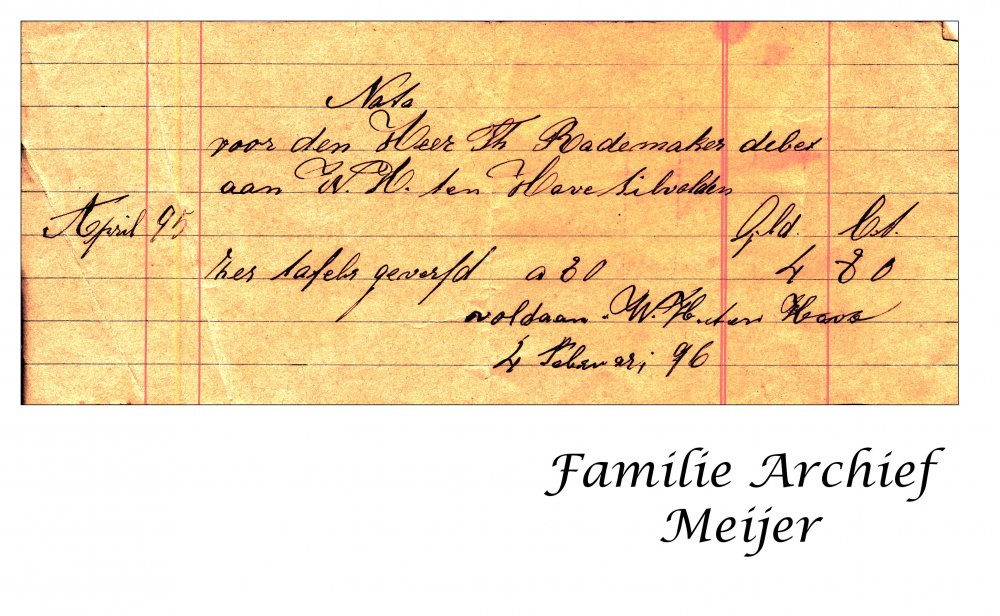 Nota
voor den Heer Th Rademaker debet
aan W. H. ten Have Silvolden
April 95 Gld. Ct.
zes tafels geverfd a 80 4 80
voldaan. W. H. ten Have
4 Februari 96
Familie Archief
Meijer